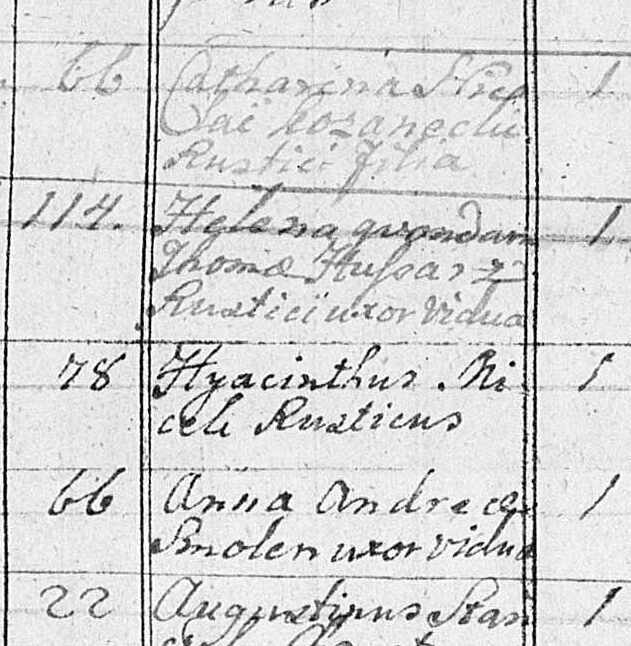 66 Catharina Nico 1
lai Kozanecki
Rustici filia
114. Helena quondam 1
Thomæ Hussarz
Rustici uxor vidua
78 Hyacinthus 1
Rusticus
66 Anna Andreæ 1
Smolen uxor vidua
22 Augustinus Stani 1